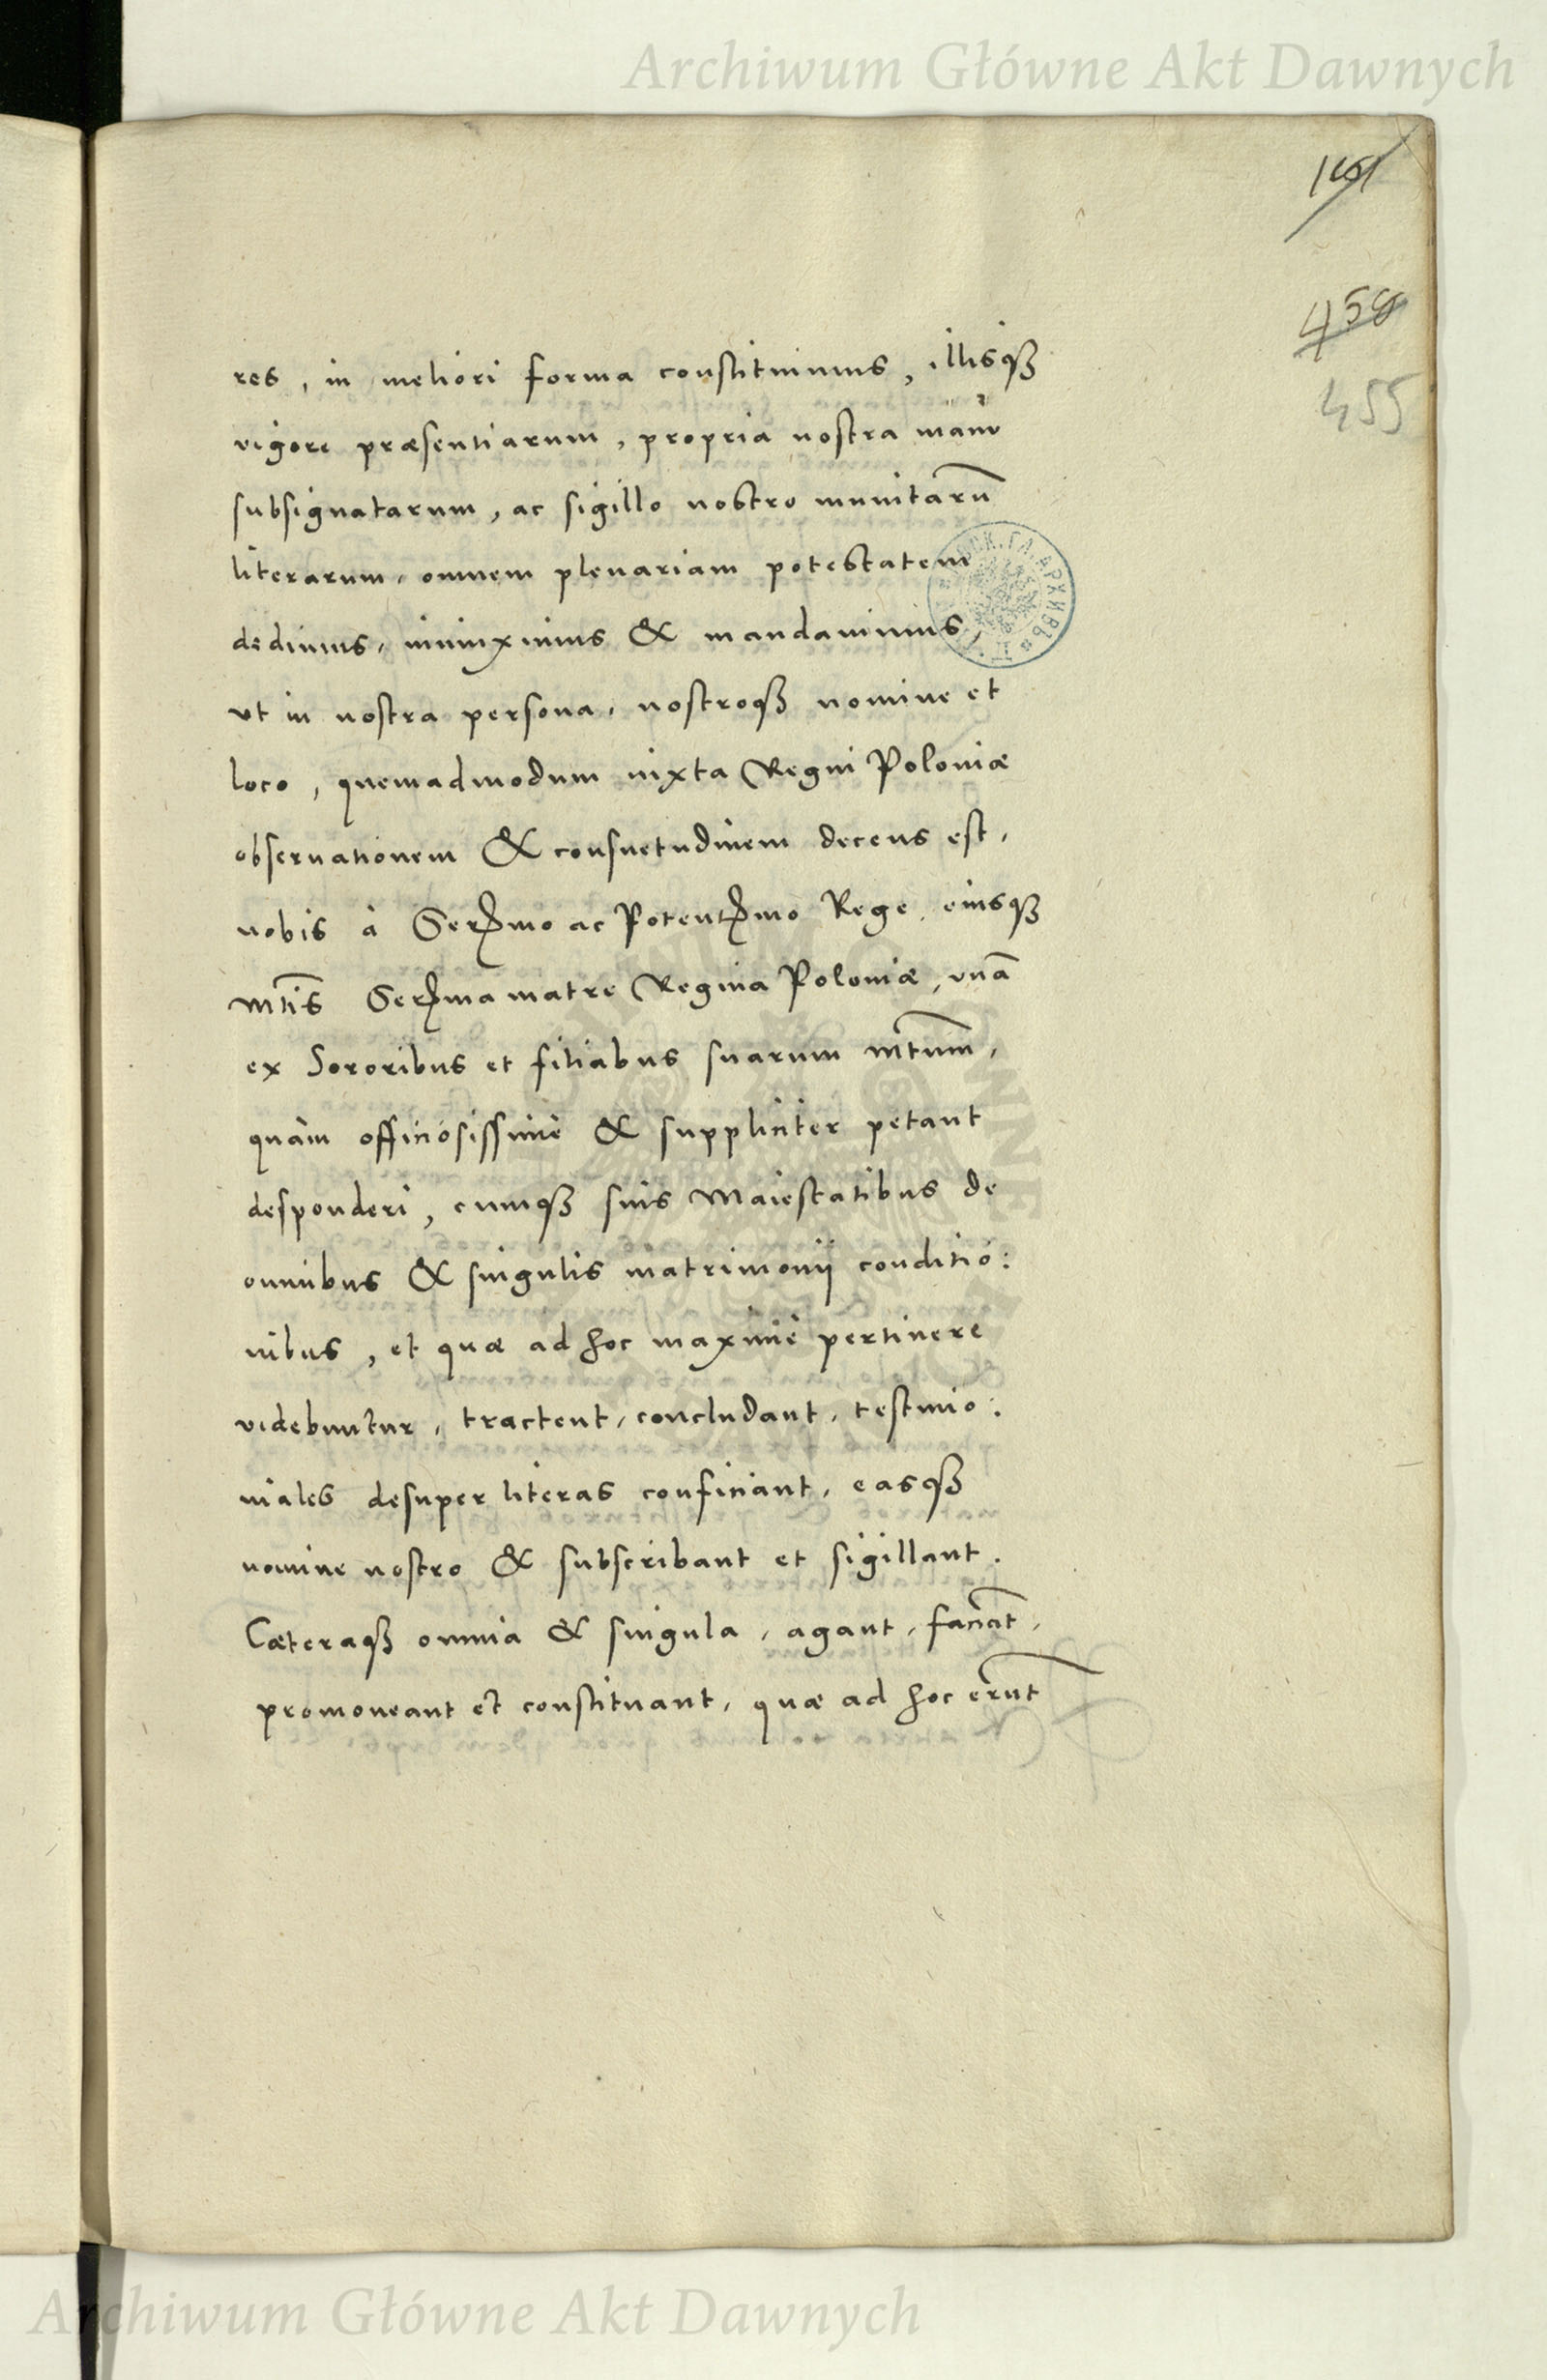 Archiwum Główne Akt Dawnych
458
455
res, in meliori forma constituimus, illisqȝ
vigore præsentiarum, propria nostra manu
subsignatarum, ac sigillo nostro munitarū
literarum, omnem plenariam potestatem
dedimus, iniunximus & mandauimus,
vt in nostra persona, nostroqȝ nomine et
loco, quemadmodum iuxta Regni Poloniæ
obseruationem & consuetudinem decens est,
nobis à Serᵐᵒ ac Potentᵐᵒ Rege, eiusqȝ
Mtis Serᵐᵃ matre Regina Poloniæ, vnā
ex Sororibus et filiabus suarum Mtum,
quàm officiosissimè & suppliciter petant
desponderi, cumqȝ suis Maiestatibus de
omnibus & singulis matrimonij conditio:
nibus, et quæ ad hoc maximè pertinere
videbuntur, tractent, concludant, testimo:
niales desuper literas conficiant, easqȝ
nomine nostro & subscribant et sigillant.
Cæteraqȝ omnia & singula, agant, faciāt,
promoueant et constituant, quæ ad hoc erunt
Archiwum Główne Akt Dawnych